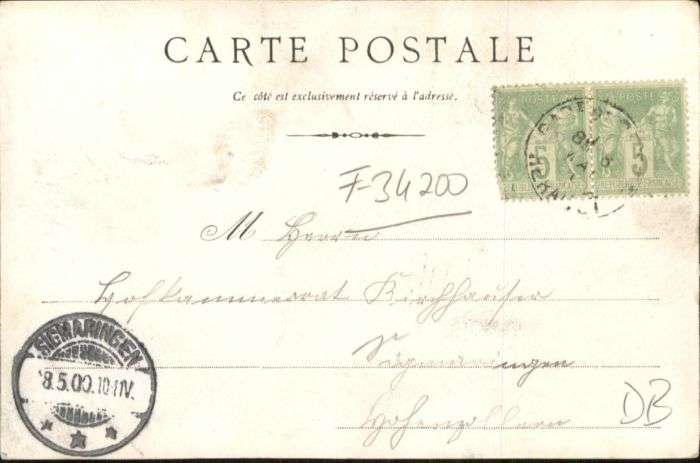 CARTE POSTALE
Ce côté est exclusivement réservé à l'adresse.
POSTE POSTE
5 5
F-34200
M Herrn
Hofkammerrat Kirchhauser
Sigmaringen
Hohenzollern
DB
SIGMARINGEN
8.5.00.10-11V.